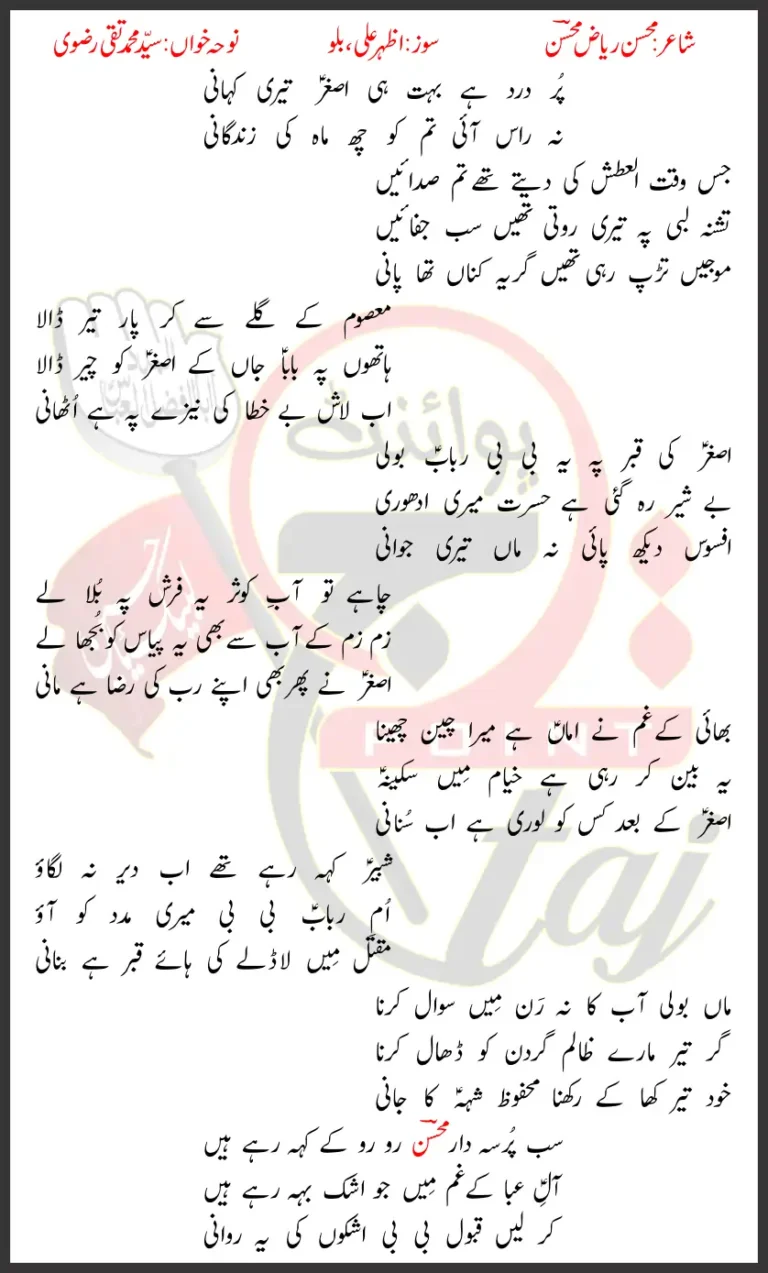 شاعر: محسن ریاض محسنؔ سوز: اظہر علی، ببلو نوحہ خواں: سیّد محمد تقی رضوی
پُر درد ہے بہت ہی اصغرؑ تیری کہانی
نہ راس آئی تم کو چھ ماہ کی زندگانی
جس وقت العطش کی دیتے تھے تم صدائیں
تشنہ لبی پہ تیری روتی تھیں سب جفائیں
موجیں تڑپ رہی تھیں گریہ کناں تھا پانی
معصوم کے گلے سے کر پار تیر ڈالا
ہاتھوں پہ باباؑ جاں کے اصغرؑ کو چیر ڈالا
اب لاش بے خطا کی نیزے پہ ہے اُٹھانی
اصغرؑ کی قبر پہ یہ بی بی ربابؑ بولی
بے شیر رہ گئی ہے حسرت میری ادھوری
افسوس دیکھ پائی نہ ماں تیری جوانی
چاہے تو آبِ کوثر یہ فرش پہ بُلا لے
زم زم کے آب سے بھی یہ پیاس کو بُجھا لے
اصغرؑ نے پھر بھی اپنے رب کی رضا ہے مانی
بھائی کے غم نے اماںؑ ہے میرا چین چھینا
یہ بین کر رہی ہے خیام مِیں سکینہؑ
اصغرؑ کے بعد کس کو لوری ہے اب سُنانی
شبیرؑ کہہ رہے تھے اب دیر نہ لگاؤ
اُمِ ربابؑ بی بی میری مدد کو آؤ
مقتل مِیں لاڈلے کی ہائے قبر ہے بنانی
ماں بولی آپ کا نہ رَن مِیں سوال کرنا
گر تیر مارے ظالم گردن کو ڈھال کرنا
خود تیر کھا کے رکھنا محفوظ شہہؑ کا جانی
سب پُرسہ دار محسنؔ رو رو کے کہہ رہے ہیں
آلِ عبا کے غم مِیں جو اشک بہہ رہے ہیں
کر لیں قبول بی بی اشکوں کی یہ روانی
پوائنٹ
تاج
POINT
taj
لبیک یا حسین